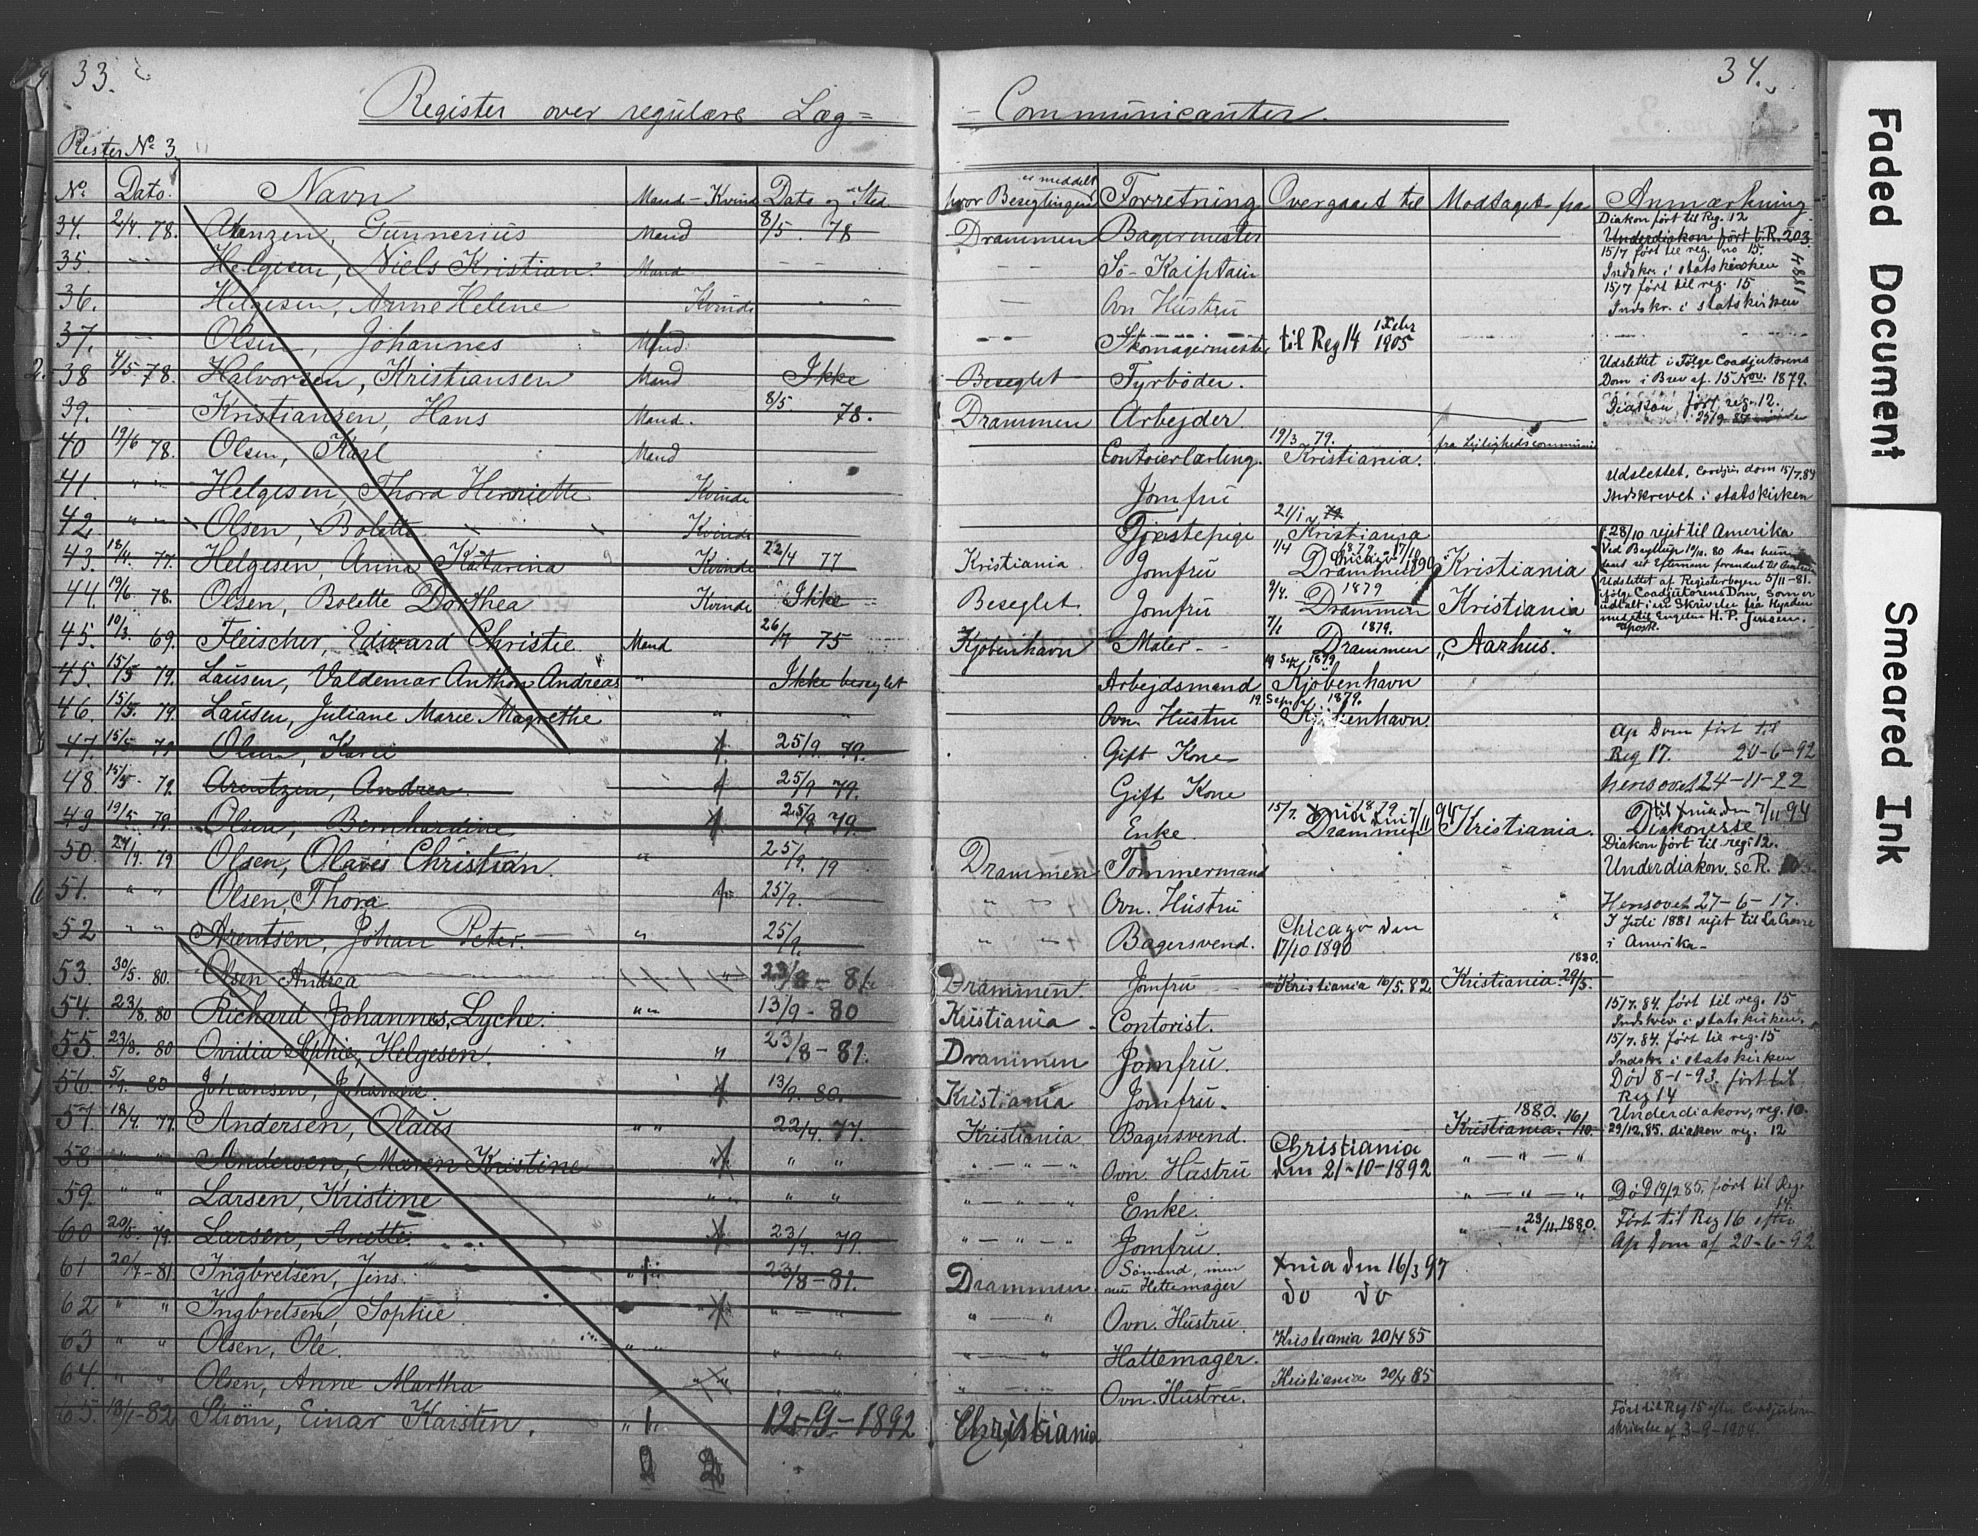 33.
34.
Register over regulære Læg=
- Communicanter.
Register No 3
No. Dato. Navn Mand - Kvinde Dato og Sted hvor Beseglingen er meddelt Forretning Overgaaet til Modtaget fra Anmærkning
Diakon ført til Reg. 12
34. 2/4 78. Gunnerius Mand 8/5. 78 Drammen Bagermester Underdiakon ført t. R. 203
15/7 ført til reg. no 15.
35. Helgesen, Niels Kristian. Mand Sö-Kaiptain Indskr. i statskirken 1884
15/7 ført til reg. 15
36. Helgesen, Anne Helene Kvinde Ovn Hustru Indskr. i statskirken
37. Olsen, Johannes Mand Skomagermester til Reg 14 1905
Udslettet i Følge Coadjutorens
38 4/5 78. Halvorsen, Kristiansen Mand Ikke Beseglet Fyrböder. Dom i Brev af 15 Nov. 1879.
39. Kristiansen, Hans Mand. 8/5 78. Drammen Arbejder Diakon, ført reg. 12.
25/9 87
40 19/6 78. Olsen, Karl Mand Contoirlærling. 19/3 79. Kristiania. fra Lejlighedscommuni
Udslettet, dom 15/7.84
41. " " Helgesen, Thora Henriette Kvinde Jomfru Indskrevet i statskirken
42. " " Olsen, Bolette Kvinde Tjenestepige 21/1 79 Kristiania 28/10 rejst til Amerika
43. 18/4. 77. Helgesen, Anna Katarina Kvinde 22/4 77 Kristiania Jomfru 1/4 1879 Drammen Chicago 17/10 1890 Kristiania
44. 19/6 78. Olsen, Bolette Dorthea Kvinde Ikke Beseglet Jomfru 9/4. 1879 Drammen Kristiania
Udslettet af Registerbogen 5/11-81.
ifølge Coadjutorens Dom, som er
udtalt i en Skrivelse fra Hyrden
med Engelen H. P. Jensen.
45. 10/3. 69. Fleischer, Edvard Christie Mand 26/7 75 Kjöbenhavn Maler - - 7/1 1879. Drammen "Aarhus."
45. 15/5 79. Lausen, Valdemar Anthon Andreas " Ikke beseglet Arbejdsmand 19 Sep. 1879 Kjöbenhavn
46. 15/5. 79. Lausen, Juliane Marie Magrethe " Ovn. Hustru 19. Sept. 1879. Kjöbenhavn.
Ap Dom ført til
47. 15/5 79 Olsen, Karie 25/9. 79. Gift Kone Reg 17. 20-6-92
48 15/5- 79. Arentzen, Andrea 25/9 79. Gift Kone hensovet 24-11-22
49 19/5- 79. Olsen, Bernhardine 25/9 79. Enke. 15/7. 1879 Drammen 7/11 94 Kristiania. til Xnia den 7/11 94
Diakonesse
Diakon ført til reg. 12.
50. 24/9. 79 Olsen, Olaves Christian. " 25/9. 79 Drammen Tömmermand Underdiakon, se R.
51. " " Olsen, Thora 25/9. " " Ovn. Hustru Hensovet 27-6-17.
52 " " Arentsen, Johan Peter. " 25/9. " " Bagersvend. Chicago den 17/10 1890 I Juli 1881 rejst til La Crosse
i Amerika -
53. 30/5. 80. Olsen Andrea " 23/8 - 81. Drammen. Jomfru Kristiania 16/5. 82. Kristiania 29/5. 1880.
15/7. 84. ført til reg. 15
54. 23/8. 80 Richard Johannes Lyche. " " 13/9 - 80 Kristiania - Contorist. Indskrev. i statskirken.
15/7. 84. ført til reg. 15
55. 23/8. 80 Ovidia Sophie, Helgesen. " 23/8 - 81. Drammen Jomfru. Indskr. i statskirken
Död 8-1-93. ført til
56. 5/9. 80 Johansen, Johanne. 13/9. 80. Kristiania Jomfru. Reg 14
57. 18/4. 77. Andersen, Olaus " " 22/4. 77. Kristiania Bagersvend. 1880. Kristiania. 16/10. Underdiakon, reg. 10.
29/12.85. diakon reg. 12
58 " " Andersen, Maren Kristine " " " " - " - " Ovn. Hustru Christiania den 21-10-1892 " - " - "
59. " " Larsen, Kristine " " " " " - " - " Enke. " - " - " Död 19/2 85. ført til Reg.
14.
60 20/5. 79. Larsen, Anette. 23/9 79. " - " - " Jomfru. " 23/11. 1880. Ført til Reg 16 efter
Ap Dom af 20-6-92
61 20/7-81. Ingbretsen, Jens. " " 23/8-81. Drammen. Sömand, men nu Hattemager Xnia den 16/3 97
62 " " Ingbretsen, Sophie " " " - " " - " Ovn. Hustru. do do
63 " " Olsen, Ole. " " " - " " - " Hattemager. Kristiania 20/4 85
64. " " Olsen, Anne Martha " " " - " " - " Ovn. Hustru. Kristiania 20/4 85
65. 18/1-82 Strøm, Einar Karsten. " " 12-9-1892 Christiania Ført til Reg 15 efter Coadjutorens
skrivelse af 3-9-1904.
Faded Document
Smeared Ink